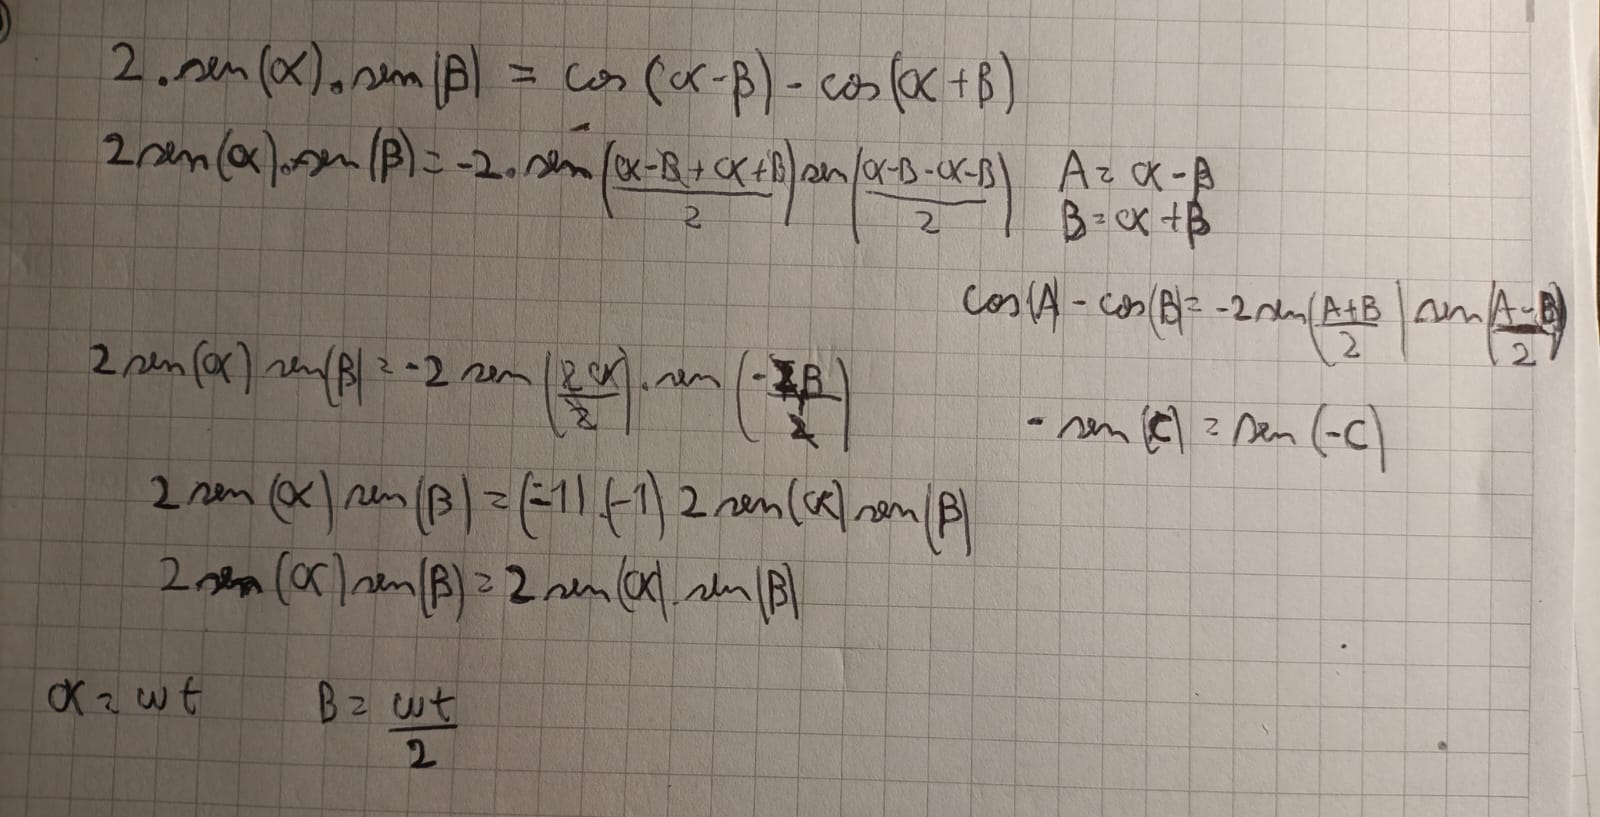 2.sen(α).sen(β) = cos(α-β)-cos(α+β)
2sen(α).sen(β)=-2.sen((α-β+α+β)/2)sen((α-β-α-β)/2) A=α-β
B=α+β
cos(A)-cos(B)=-2sen((A+B)/2)sen((A-B)/2)
2sen(α)sen(β)=-2sen(2α/2).sen(-2β/2)
-sen(C)=sen(-C)
2sen(α)sen(β)=(-1)(-1)2sen(α)sen(β)
2sen(α)sen(β)=2sen(α).sen(β)
α=ωt β=ωt/2